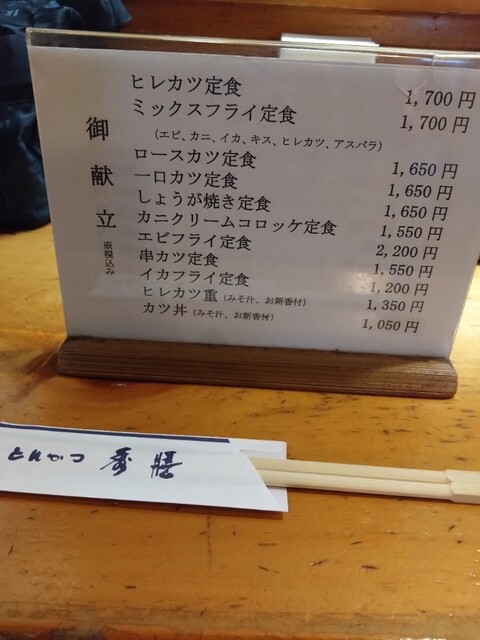 御献立
※税込み
ヒレカツ定食 1,700円
ミックスフライ定食 1,700円
(エビ、カニ、イカ、キス、ヒレカツ、アスパラ)
ロースカツ定食 1,650円
一口カツ定食 1,650円
しょうが焼き定食 1,650円
カニクリームコロッケ定食 1,550円
エビフライ定食 2,200円
串カツ定食 1,550円
イカフライ定食 1,200円
ヒレカツ重(みそ汁、お新香付) 1,350円
カツ丼(みそ汁、お新香付) 1,050円
とんかつ 秀膳